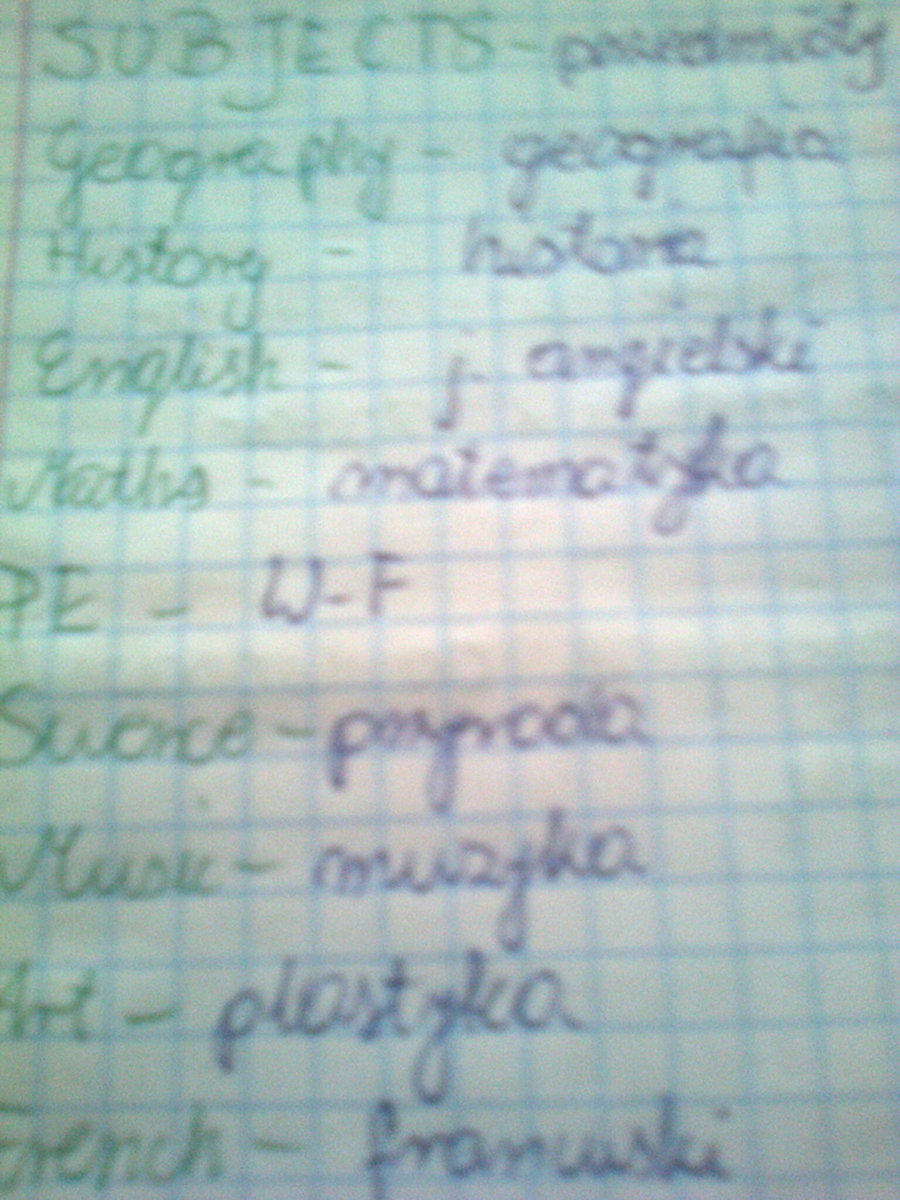 SUBJECTS - przedmioty
Geography - geografia
History - historia
English - j. angielski
Maths - matematyka
PE - W-F
Science - przyroda
Music - muzyka
Art - plastyka
French - francuski